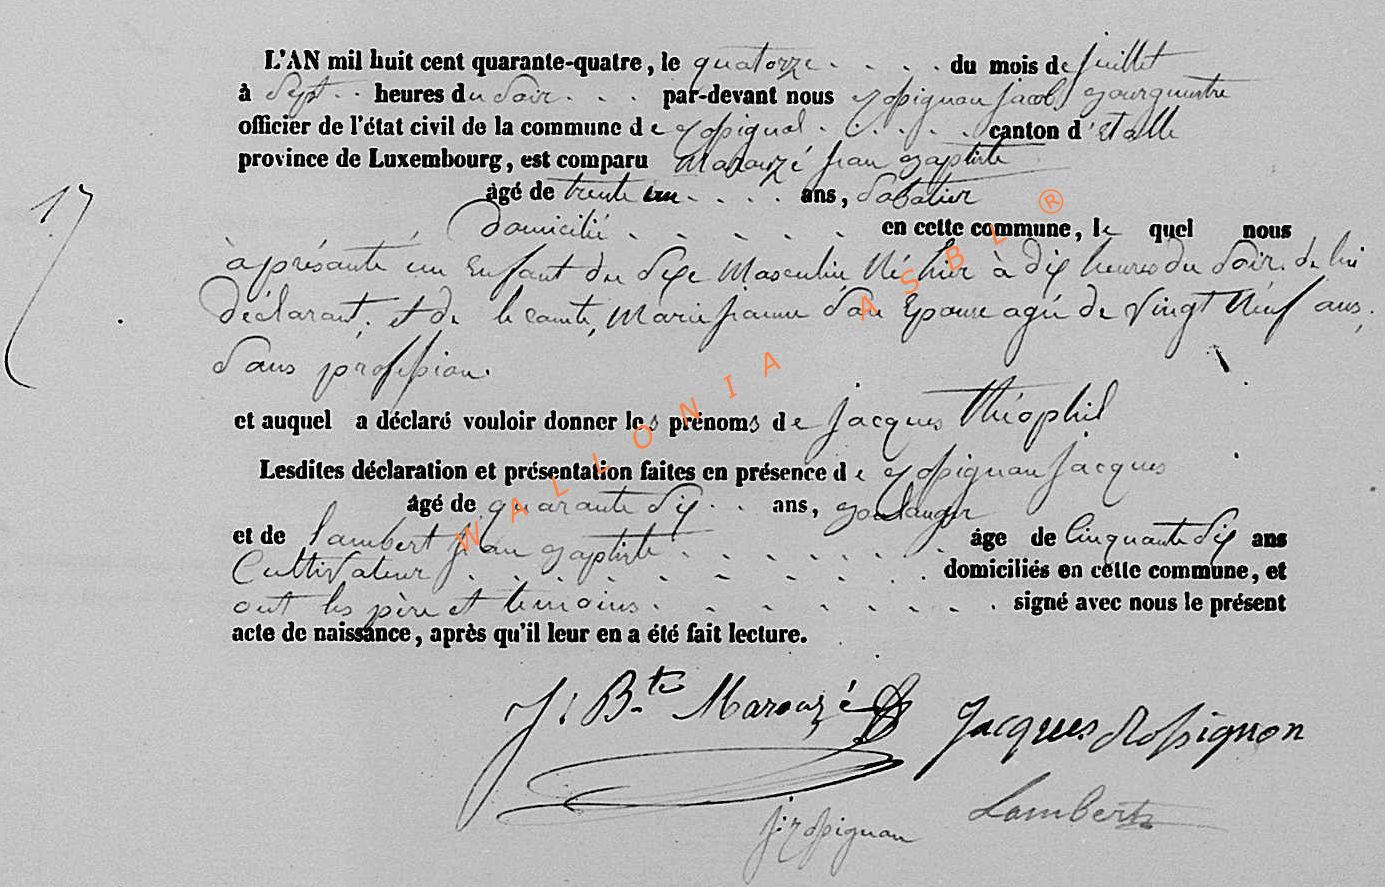 L'AN mil huit cent quarante-quatre, le quatorze du mois de juillet
à Sept heures du Soir par-devant nous Rossignon Jacob Bourgumetre
officier de l'état civil de la commune de Rossignol canton d'Etalle
province de Luxembourg, est comparu Marouzé jean Baptiste
âgé de trente un ans, Sabatier
17
domicilié en cette commune, le quel nous
à présanté un Enfant du Sexe Masculin Né hier à dix heures du Soir. de lui
déclarant, et de le comte, Marie jeanne Son Epouse agée de Vingt Neuf ans,
Sans profession.
et auquel a déclaré vouloir donner les prénoms de jacques Théophil
Lesdites déclaration et présentation faites en présence de Rossignon Jacques
âgé de quarante dix ans, Boulanger
et de lambert jean Baptiste âge de Cinquante dix ans
Cultivateur domiciliés en cette commune, et
ont les père et témoins signé avec nous le présent
acte de naissance, après qu'il leur en a été fait lecture.
J: B.te Marouzé Jacques Rossignon
j: Rossignon Lambert
WALLONIA ASBL ®